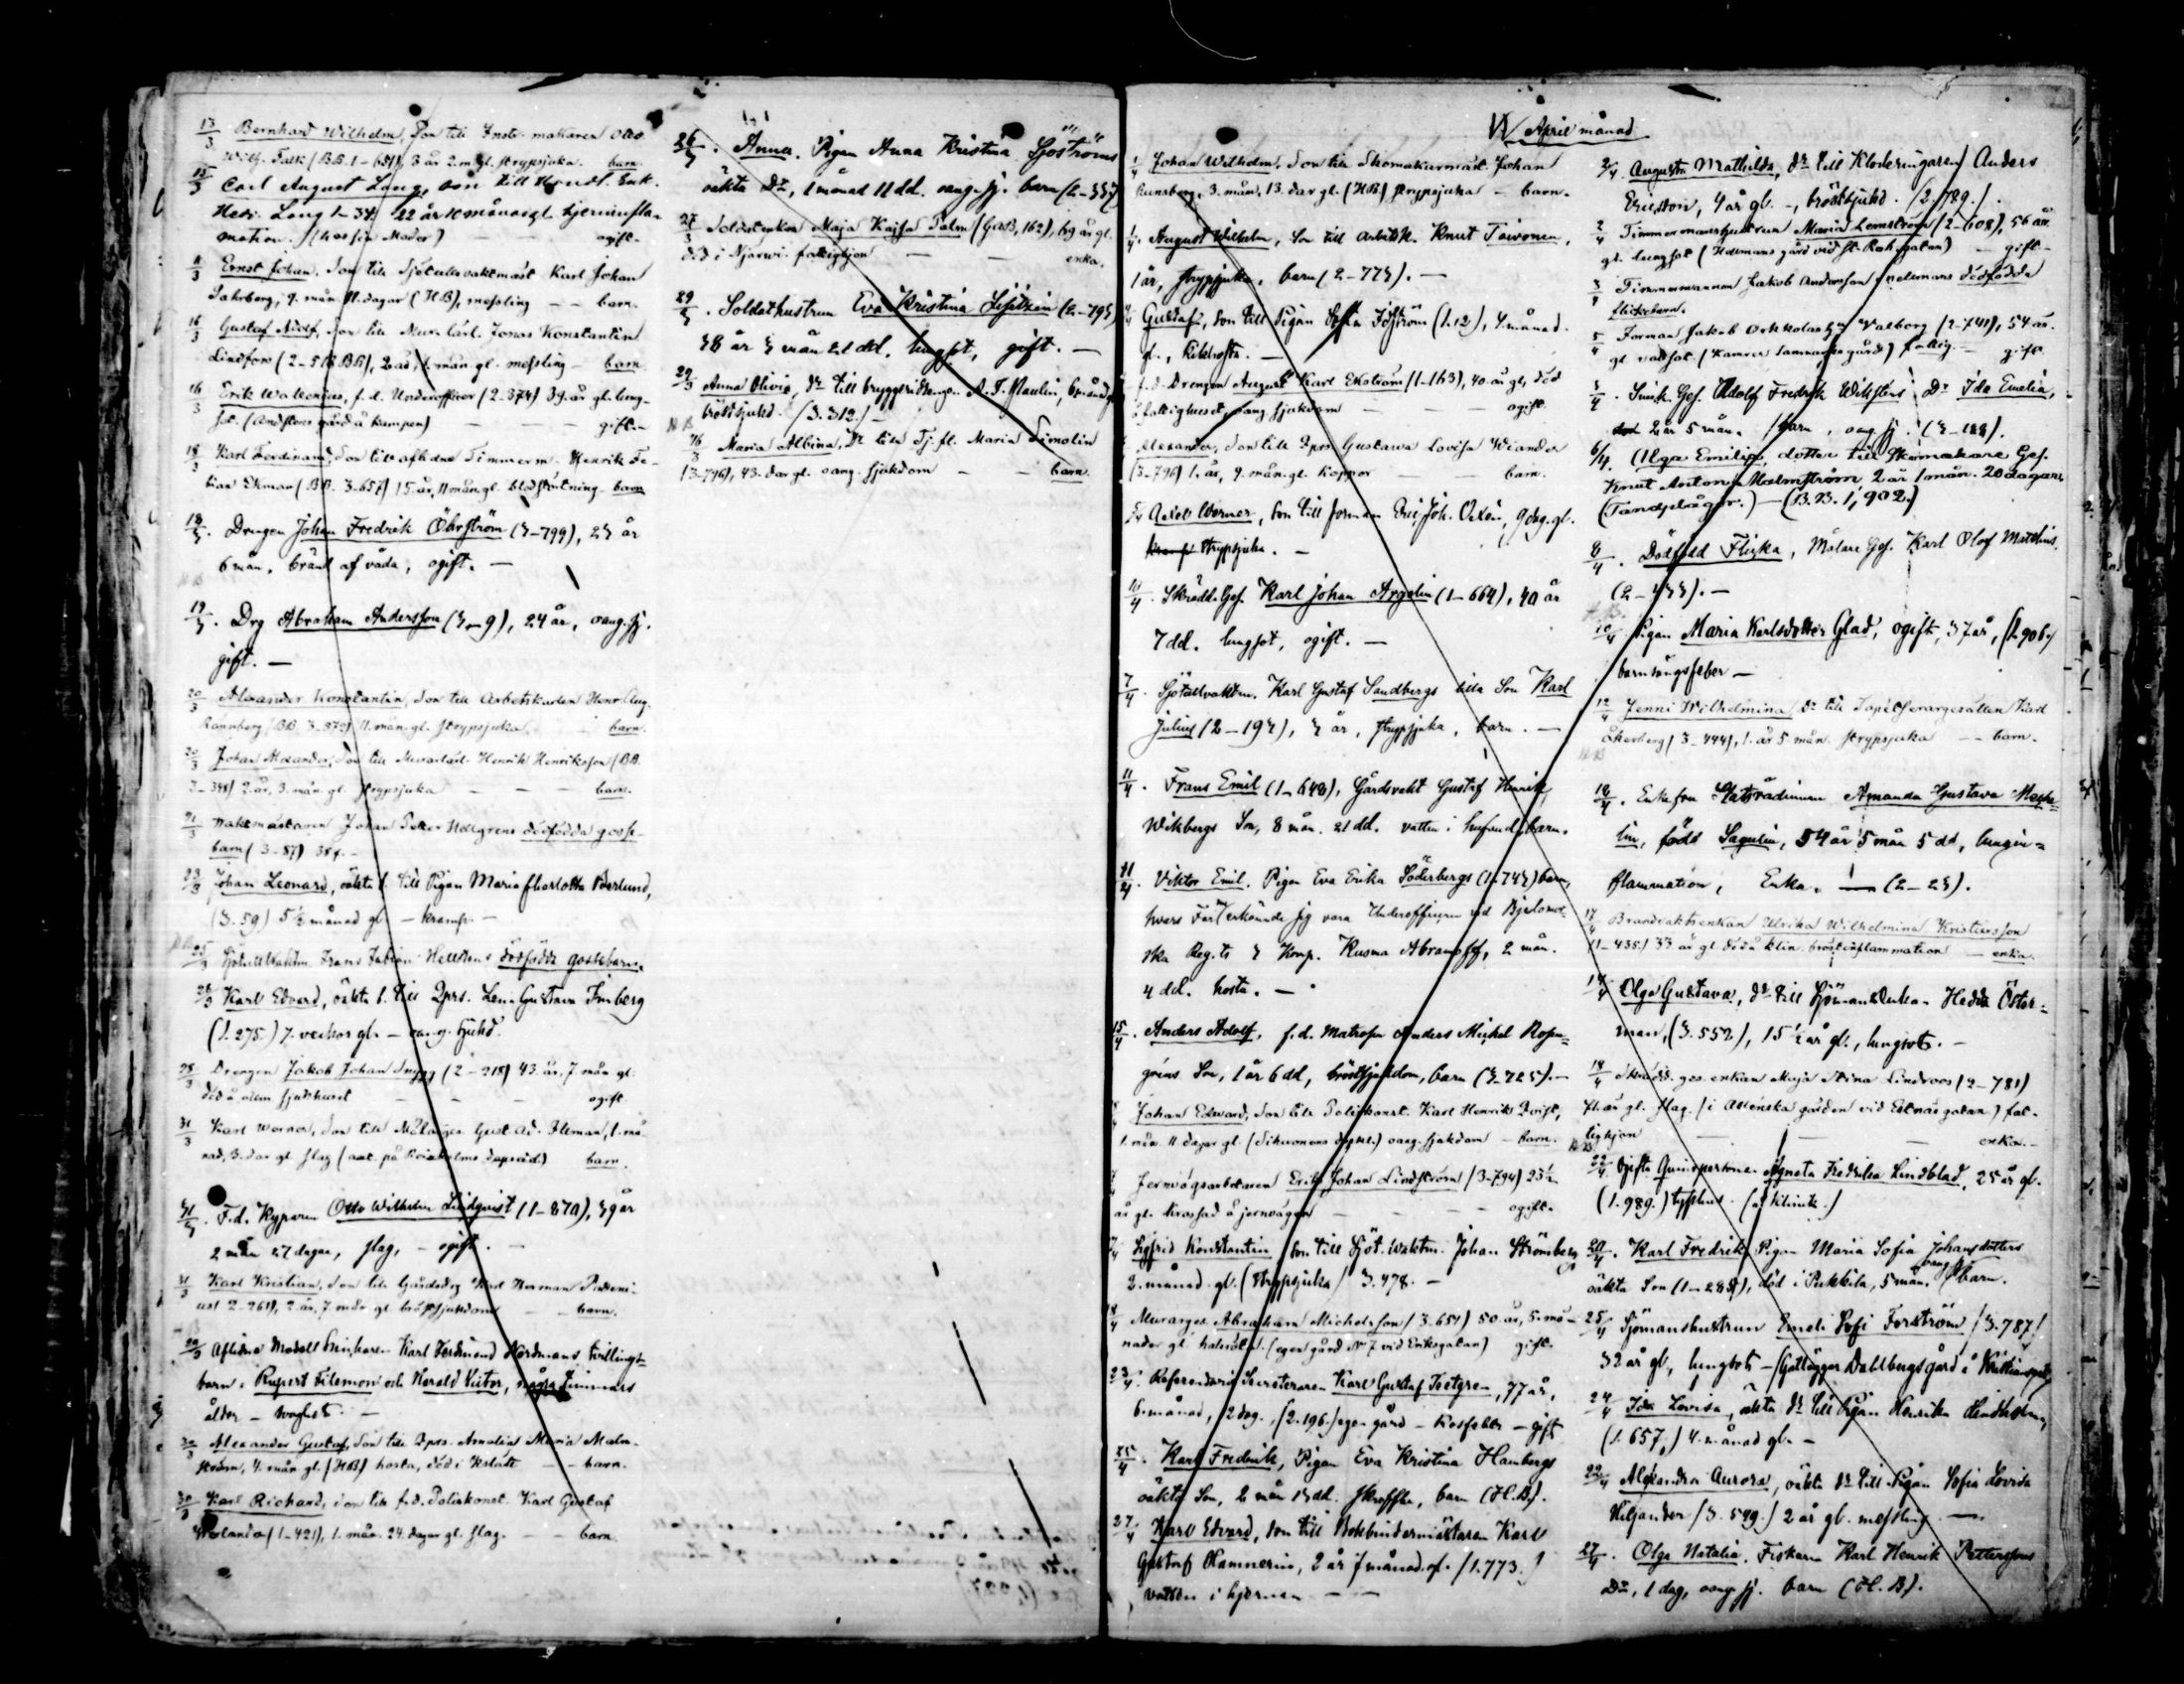 13/3 Bernhard Wilhelm, Son till Instr. makaren Otto
Wilh. Falk (BB. 1-681) 3 år 2. m. gl. strypsjuka. barn.
Carl August Long, son till Handl. Enk.
Hedv. Long 1-34 22 år 10 månad gl. hjerninfla-
mation. (hos sin Moder) ogift.
Ernst Johan, Son till Sjötullsvaktmäst. Karl Johan
Sahrberg, 9. mån. 11. dagar (HB), messling - - barn.
16/3 Gustaf Adolf, son till Murarlärl. Jonas Konstantin
Lindfors (2-516 BB), 2 år, mån. gl. messling - barn.
16/3 Erik Wallenius, f. d. Underofficer (2-374) 39. år gl. lung-
sot. (Andsténs gård å kampen) gift.
18/3 Karl Ferdinand, Son till aflidne Timmerm. Henrik Fa-
bian Ekman (BB. 3-657) 15 år, 11 mån. gl. blodstörtning. barn
18/3. Drengen Johan Fredrik Öhrström (3-799), 23 år
6 mån, bränt af våda, ogift. —
19/3. Drg Abraham Andersson (3-9), 24 år, oang. sj.
gift. —
20/3 Alexander Konstantin, Son till Arbetskarlen Henr. Aug.
Rannberg (BB. 3-979) 11. mån. gl. strypsjuka barn.
20/3 Johan Alexander, Son till Murarlärl. Henrik Henriksson (BB.
3-398) 2 år, 3. mån. gl. strypsjuka - - - barn.
21/3 Vaktmästaren Johan Peter Hellgrens dödfödda gosse-
barn (3-87) 38 f. -
23/3 Johan Leonard, oäkta s. till Pigan Maria Charlotta Berlund,
(3.59) 5½ månad gl. - kramp. -
25/3 Sjötullvaktm. Frans Fabian Hellstens dödfödda gossebarn.
26/3 Karl Edvard, oäkta s. till Qprs. Lena Gustava Imberg
(1.275.) 7. veckor gl. - oang. sjukd.
28/3 Drengen Jakob Johan Snygg (2-218) 43. år, 7 mån gl.
död å allm sjukhuset - - ogift.
31/3 Karl Werner, Son till Målarges. Gust. Ad. Illeman, 1. må-
nad, 3. dar gl. slag barn.
31/3. F.d. Kyparen Otto Wilhelm Lindqvist (1-870), 39 år
2 mån 27 dagar, slag, - ogift. -
31/3 Karl Kristian, Son till Gårdsdrg Karl Herman
2-261), 2. år, 7 mån gl. bröstsjukdom - barn.
20/3 Aflidne Modell Snickaren Karl Ferdinand Nordmans tvillings-
barn, Rupert Filemon och Harald Victor, några timmars
ålder - svaghet. -
30/3 Alexander Gustaf, Son till Qprs. Amalia Maria Malm-
ström, 4. mån gl. (HB) hosta, död i - barn.
30/3 Karl Richard, Son till f.d. Poliskonst. Karl Gustaf
Welander (1-421), 1. mån. 24. dagar gl. slag. - - barn.
26/3. Anna, Pigan Anna Kristina Sjöströms
oäkta Dr, 1 månad 11 dd. oang. sj. barn (2-537)
27/3 Soldatenkan Maja Kajsa Palm (GAB, 162), 69 år gl.
död i Njarwi. fattighjon - - enka.
29/3. Soldathustrun Eva Kristina Sifitzin (2-795)
38 år 3 mån 21 dd. lungsot, gift. —
29/3 Anna Olivia, Dr till bryggeridrengen A. F. Maulin, 6 månd gl
bröstsjukd. (3.312.) -
16/3 Maria Albina, Dr till Tj. fl. Maria Simolin
(3-796), 43. dar gl. oang. sjukdom - - barn.
IV April månad
1/4 Johan Wilhelm, Son till Skomakarmäst. Johan
Runsberg, 3. mån, 13. dar gl. (HB) strypsjuka - barn.
1/4. August Wilhelm, Son till Arbetsk. Knut Toivonen,
1 år, strypsjuka, barn (2-773). —
Gustaf, Son till Pigan Sofia Sjöström (1.12), 4. månad.
gl., kikhosta. —
f. d. Drengen August Karl Ekström (1-163), 40. år gl, död
å fattighuset, oang. sjukdom - ogift.
Alexander, Son till Qprs. Gustava Lovisa Wiander
(3-796) 1. år, 9. mån. gl. koppor - barn.
Axel Werner, Son till forman Erik Joh. Oxén, 9 dag. gl.
strypsjuka. -
10/4. Skrädd. Ges. Karl Johan Argelin (1-664), 40 år
7 dd. lungsot, ogift. —
7/4. Sjötullvaktm. Karl Gustaf Sandbergs lilla Son Karl
Julius (2-193), 3 år, strypsjuka, barn. —
11/4. Frans Emil (1-648), Gårdsvakt Gustaf Henrik
Wikbergs Son, 8 mån. 21 dd. vatten i hufvud, barn.
11/4. Viktor Emil, Pigan Eva Erika Söderbergs (1-743) barn,
hvars Far erkände sig vara Underofficern vid Bjelomor-
ska Reg. ts 3 Komp. Kusma Abramoff, 2 mån.
4 dd. hosta. —
15/4. Anders Adolf, f. d. Matrosen Anders Mickel Rosen-
gréns Son, 1 år 6 dd, bröstsjukdom, barn (3-725). -
Johan Edward, Son till Poliskonst. Karl Henrik Qvist,
1. mån. 11 dagar gl. oang. sjukdom - barn.
Jernvägsarbetaren Erik Johan Lindström (3-794) 23½
år gl. krossad å jernvägen - - ogift.
Sigfrid Konstantin Son till Sjöt. Waktm. Johan Strömberg
3. månad. gl. (strypsjuka) 3.478. -
Murarges. Abraham Michelsson (3-654) 50. år, 5. må-
nader gl. halsröta. (egen gård N 7 vid Eriksgatan) gift.
23/4. Referendarie Secreteraren Karl Gustaf Toetgren, 77 år,
6. månad, 12 dag. (2.196.) egen gård - Rosfeber - gift
25/4. Karl Fredrik, Pigan Eva Kristina Hambergs
oäkta Son, 2 mån 13 dd. skroffler, barn (H.B.).
27/4 Karl Edvard, Son till Bokbindermästaren Karl
Gustaf Hamnerin, 2 år 7 månad. gl. (1.773.)
vatten i hjernan - -
2/4. Augusta Mathilda, Dr till Klaveringaren Anders
Ericsson, 4 år gl. -, bröstsjukd. (2.789.)
2/4 Timmermanshustrun Maria Lemström (2-608), 56 år
gl. lungsot (Hallemans gård vid St. Rob. gatan) - gift -
3/4 Timmermannen Jakob Andersson dödfödda
flickebarn.
5/4 Forman Jakob Valborg (2-741), 54 år.
gl. vattsot - gift
Snick. Ges. Adolf Fredrik Wiksténs Dr Ida Emelia,
2 år 5 mån. barn, oang. sj. (3-188).
6/4. Olga Emilia, dotter till Skomakare Ges.
Knut Anton Malmström 2 år 1 mån. 20 dagar
(Tandplågor.) — (B.B. 1, 902.)
8/4. Dödfödd Flicka, Målare Ges. Karl Olof Matelins,
(2-433). —
10/4 Pigan Maria Karlsdotter Glad, ogift, 37 år, (1.906.)
barnsängsfeber —
12/4 Jenni Wilhelmina, Dr till Tapetserargesällen Karl
Åkerberg (3-444), 1. år 5 mån. strypsjuka - - barn.
18/4. Enkefru Statsrådinnan Amanda Gustava Meche-
lin, född Sagulin, 54 år 5 mån 5 dd, lungin-
flammation, Enka. — (2-23).
17/4 Brandvaktsenkan Ulrika Wilhelmina Kristiersson
(1-435) 33 år gl. död å klin. bröstinflammation - enka.
Olga Gustava, Dr till Sjömansenkan Hedda Öster-
man, (3.552), 15½ år gl., lungsot. -
18/4 Skrädd. ges. enkan Maja Stina Lindroos (2-781)
71. år gl. slag. (i Allénska gården vid Estnäsgatan) fat-
tighjon - - enka. -
22/4 Ogifta Quinspersonen Agneta Fredrika Lindblad, 25 år gl.
(1.989.) typhus. (å klinik.)
20/4. Karl Fredrik, Pigan Maria Sofia Johansdotters
oäkta Son (1-288), död i Pukkila, 5 mån. oang. sj. barn.
25/4 Sjömanshustrun Emeli Sofi Forström (3.787)
32 år gl, lungsot -
24/4 Ida Lovisa, oäkta Dr till Pigan Henrika Lindholm,
(1.657,) 4. månad gl. -
22/4 Alexandra Aurora, oäkta Dr till Pigan Sofia Lovisa
Hiljander (3.549.) 2 år gl. messling. —
27/4. Olga Natalia, Fiskaren Karl Henrik Petterssons
Dr, 1 dag, oang. sj. barn (H.B).